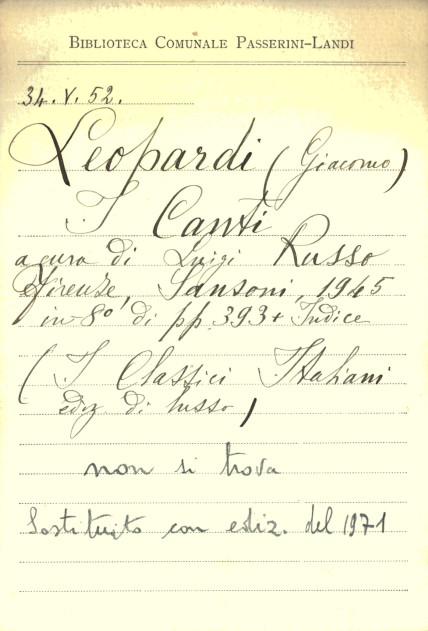 BIBLIOTECA COMUNALE PASSERINI-LANDI
34. V. 52.
Leopardi (Giacomo)
I Canti
a cura di Luigi Russo
Firenze, Sansoni, 1945
in 8° di pp. 393 + Indice
(I Classici Italiani
ediz di lusso)
non si trova
Sostituito con ediz. del 1971